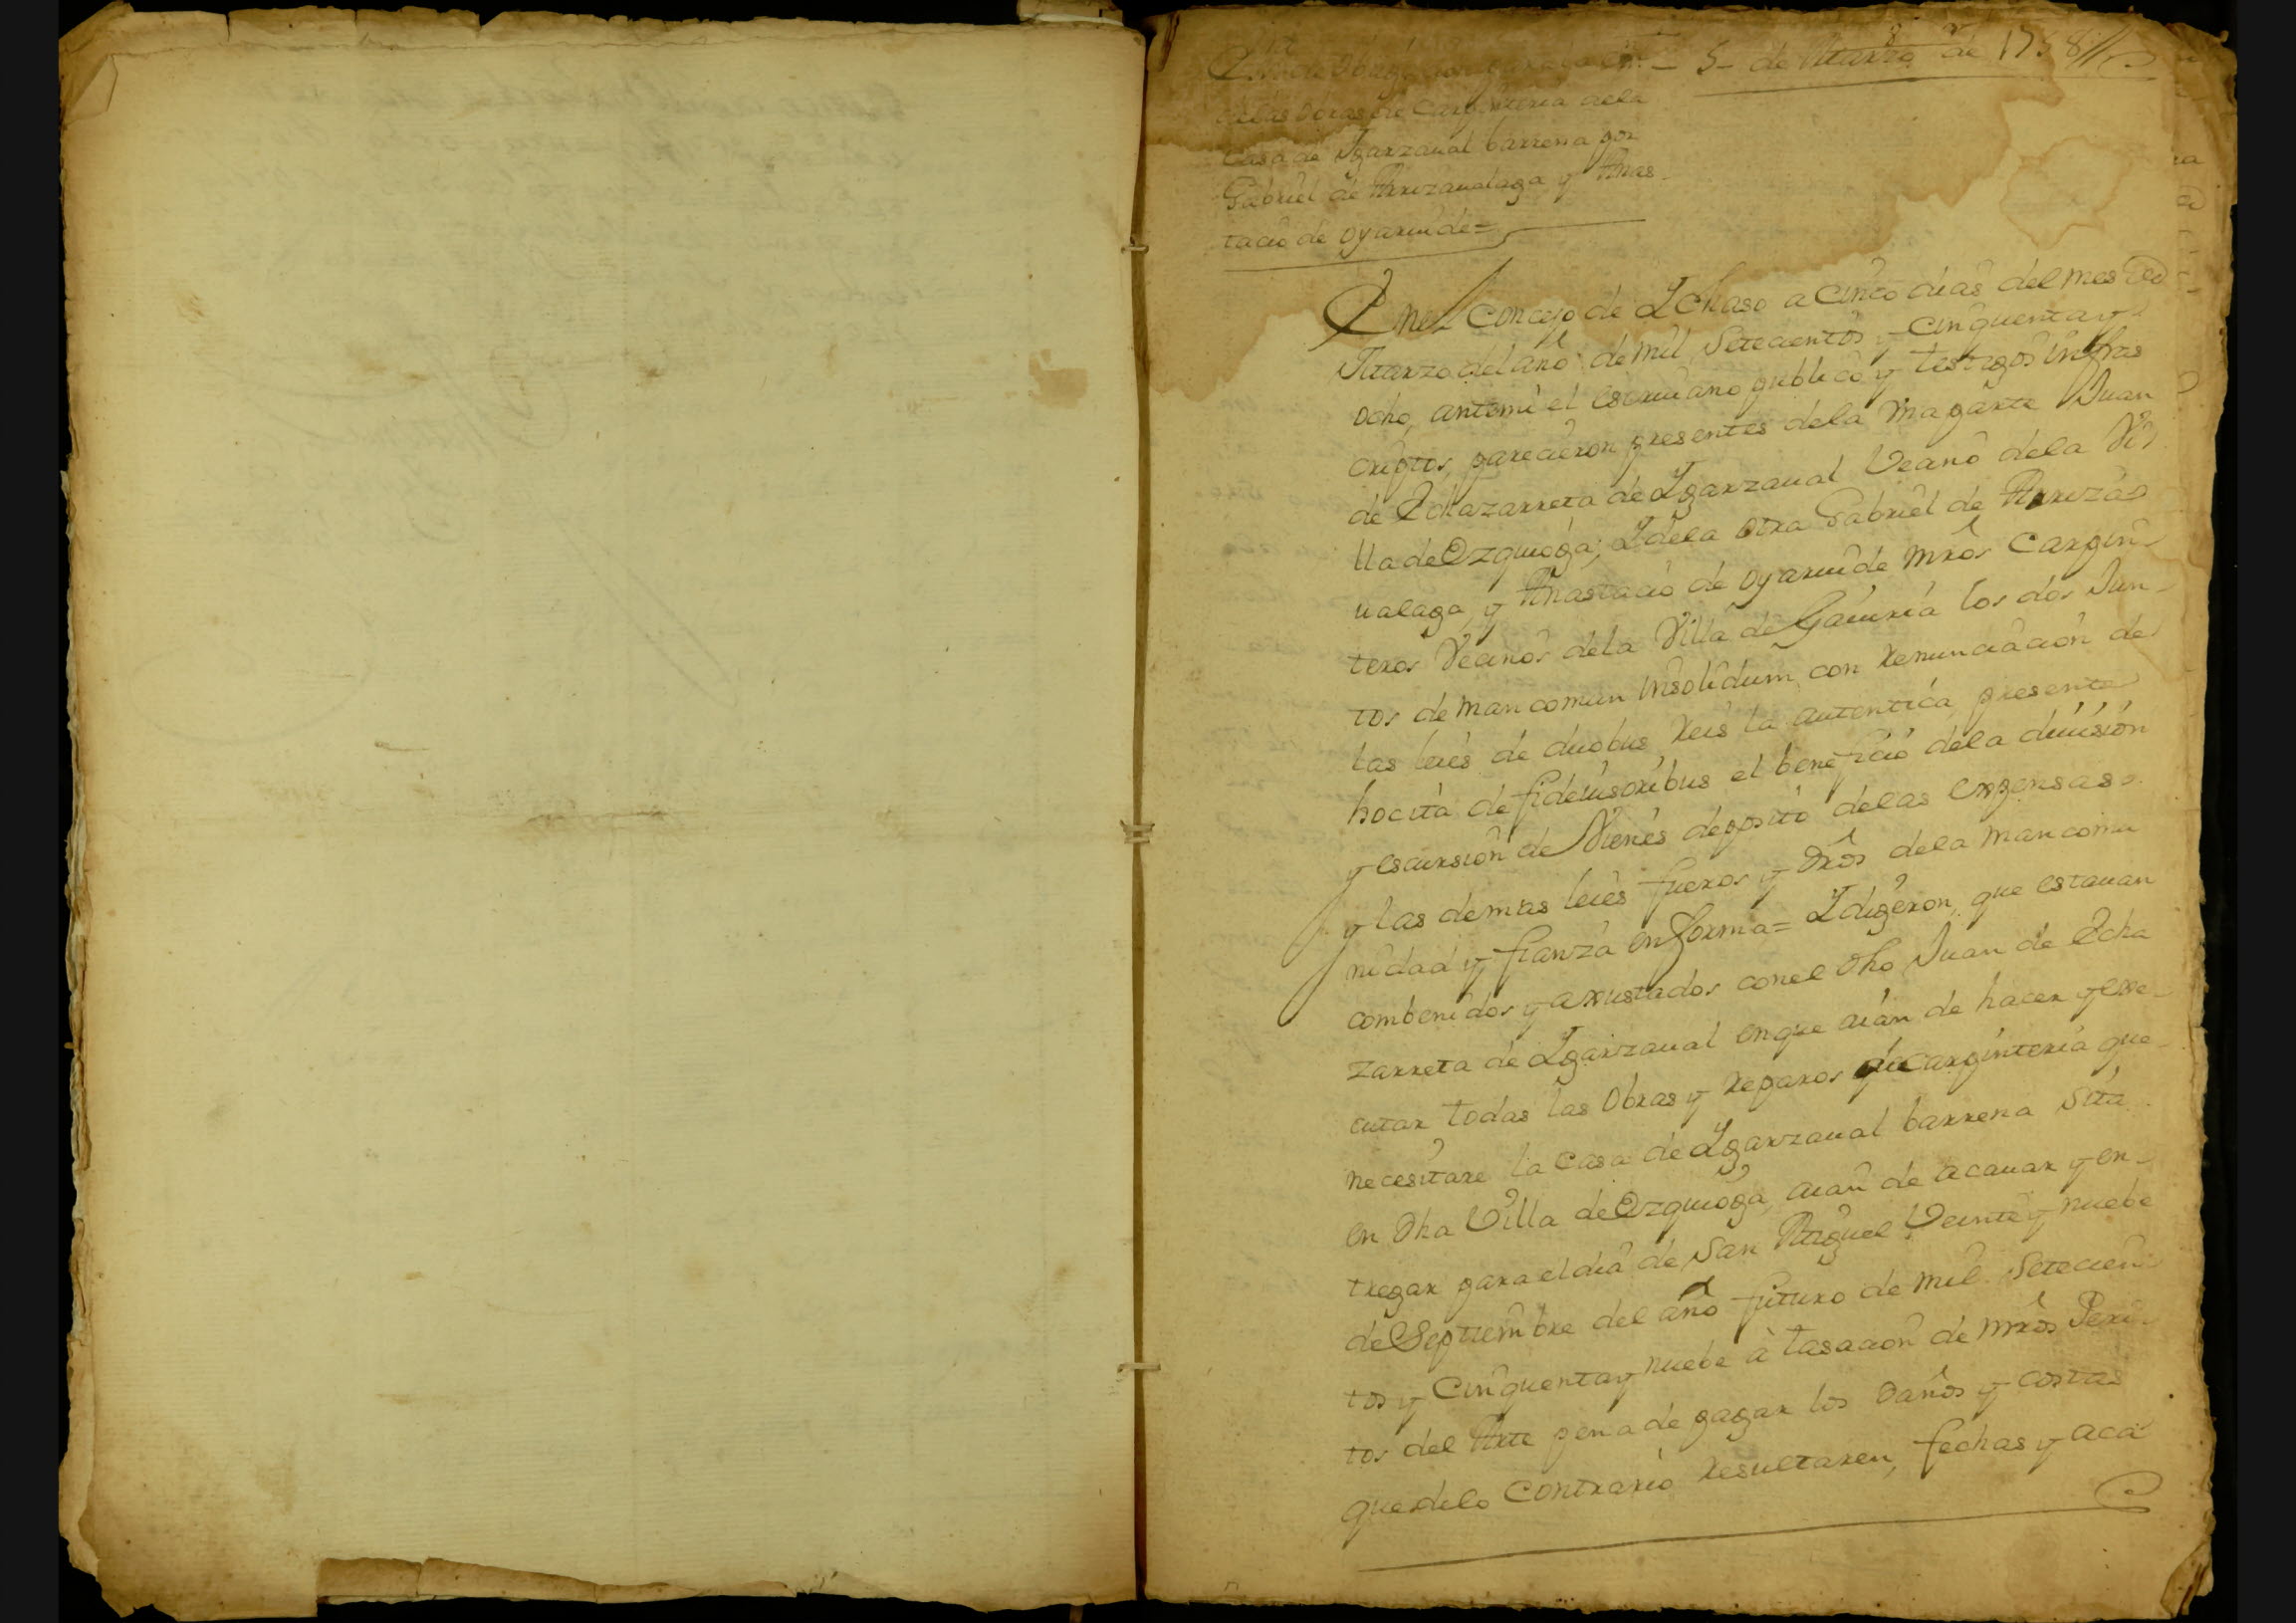 5 de Marzo de 1758
de las obras de Carpinteria dela
Casa de Ygarzaual barrena por
Gabriel de Arrizaualaga y Anas-
tacio de oyaruide=
En el Concejo de Ychaso a Cinco dias del mes de
Marzo del año de mil Setecientos y Cinquenta y
ocho, antemi el escriuano publico y testigos infras
criptos, parecieron presentes dela vna parte Juan
de Echazarreta de Ygarzaual Vecino dela Vi
lla de Ezquioga; Y dela otra Gabriel de Arriza
ualaga, y Anastacio de oyaruide Mros Carpin-
teros Vecinos dela Villa de Gauiria los dos Jun-
tos de man comun insolidum, con Renunciacion de
las leies de duobus Reis la autentica presente
hocita de fideiusoribus el beneficio dela diuision
y escursion de Vienes deposito delas expensas
y las demas leies fueros y Dros dela mancomu
nidad y fianza en forma= Y digeron, que estauan
combenidos y axustados conel dho Juan de Echa
zarreta de Ygarzaual enque aian de hacer y exe-
cutar todas las Obras y Reparos de Carpinteria que
necesitare la Casa de Ygarzaual barrena Sita
en dha Villa de Ezquioga, aian de acauar y en-
tregar para el dia de San Miguel Veinte y nuebe
de Septiembre del año futuro de mil Setecien
tos y Cinquenta y nuebe à tasacion de mros Peri-
tos del Arte pena de pagar los Daños y costas
que delo Contrario Resultaren, fechas y aca